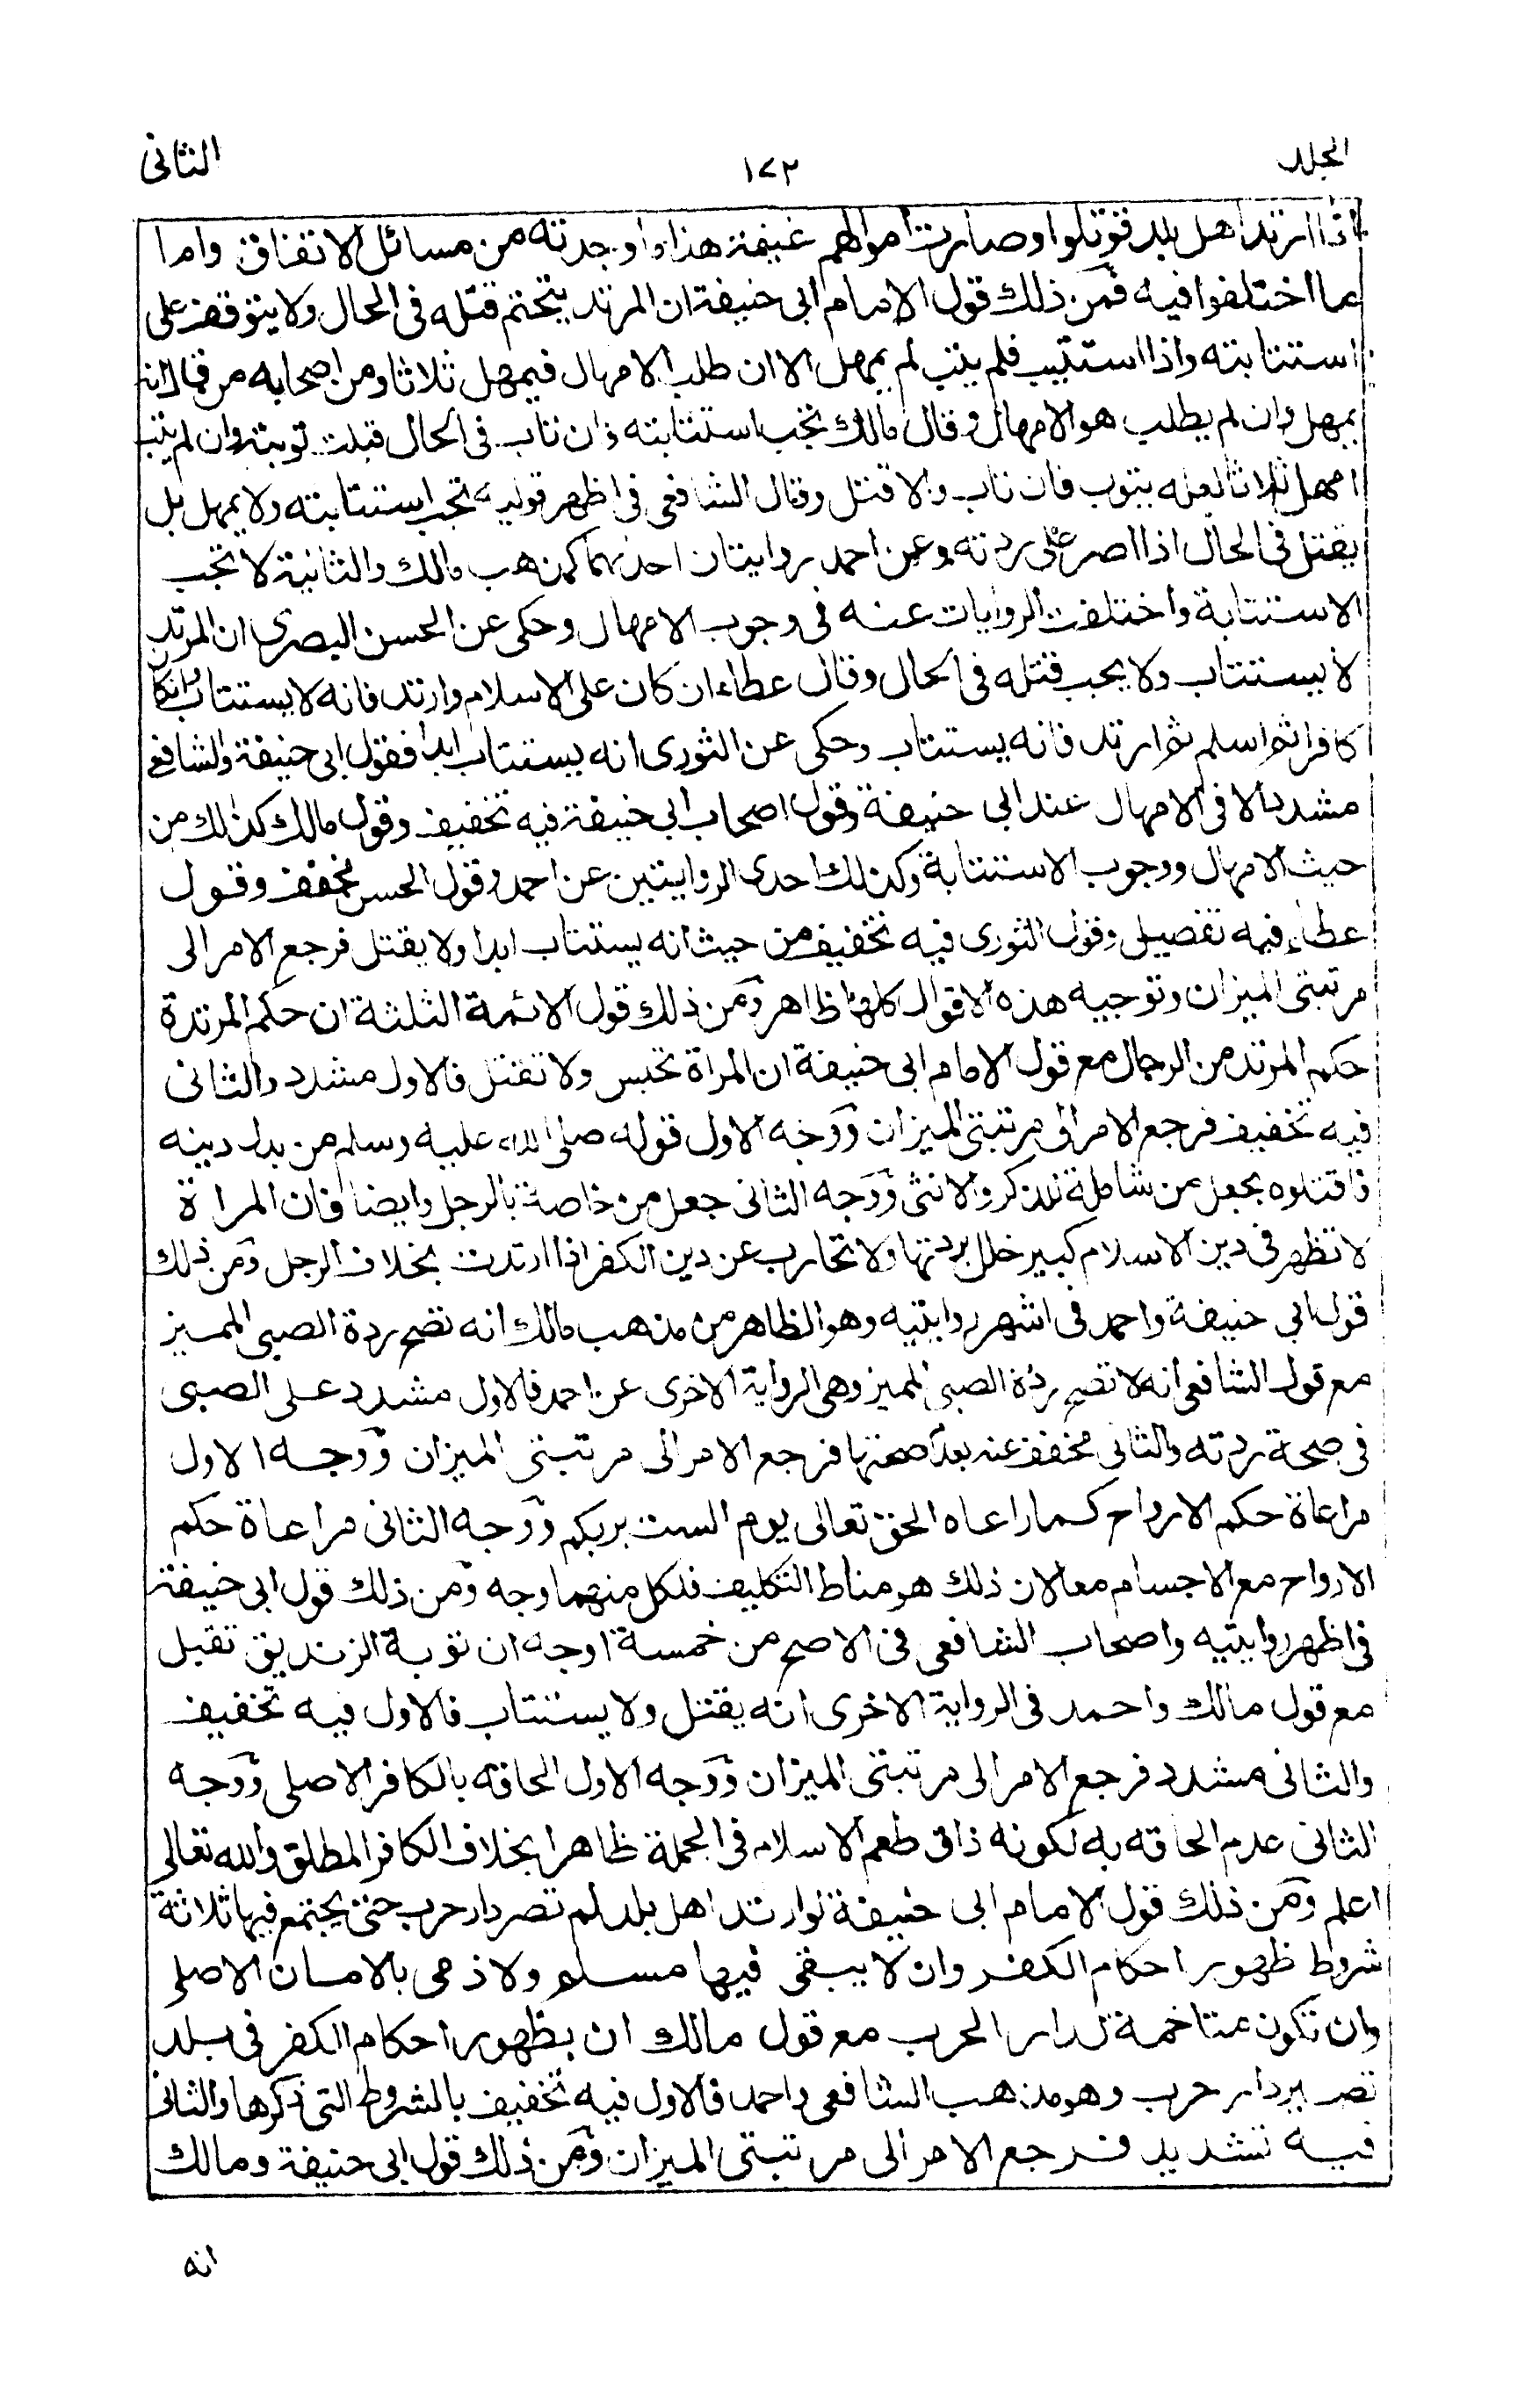 المجلد ١٧٢ الثانى
اذا ارتد اهل بلد قوتلوا وصارت اموالهم غنيمة هذا ما وجدته من مسائل الاتفاق واما
ما اختلفوا فيه فمن ذلك قول الامام ابى حنيفة ان المرتد يتحتم قتله فى الحال ولا يتوقف على
استتابته واذا استتيب فلم يتب لم يمهل الا ان طلب الامهال فيمهل ثلاثا ومن اصحابه من قال انه
يمهل وان لم يطلب هو الامهال وقال مالك تجب استتابته فان تاب فى الحال قبلت توبته وان لم يتب
امهل ثلاثا لعله يتوب فان تاب والا قتل وقال الشافعى فى اظهر قوليه تجب استتابته ولا يمهل بل
يقتل فى الحال اذا اصر على ردته وعن احمد روايتان احدهما كمذهب مالك والثانية لا تجب
الاستتابة واختلفت الروايات عنه فى وجوب الامهال وحكى عن الحسن البصرى ان المرتد
لا يستتاب ولا يجب قتله فى الحال وقال عطاء ان كان على الاسلام وارتد فانه لا يستتاب وانكان
كافرا ثم اسلم ثم ارتد فانه يستتاب وحكى عن الثورى انه يستتاب ابدا فقول ابى حنيفة والشافعى
مشدد الا فى الامهال عند ابى حنيفة وقول اصحاب ابى حنيفة فيه تخفيف وقول مالك كذلك من
حيث الامهال ووجوب الاستتابة وكذلك احدى الروايتين عن احمد وقول الحسن مخفف وقول
عطاء فيه تفصيل وقول الثورى فيه تخفيف من حيث انه يستتاب ابدا ولا يقتل فرجع الامر الى
مرتبتى الميزان وتوجيه هذه الاقوال كلها ظاهر ومن ذلك قول الائمة الثلثة ان حكم المرتدة
حكم المرتد من الرجال مع قول الامام ابى حنيفة ان المراة تحبس ولا تقتل فالاول مشدد والثانى
فيه تخفيف فرجع الامر الى مرتبتى الميزان ووجه الاول قوله صلى الله عليه وسلم من بدل دينه
فاقتلوه بجعل من شاملة للذكر والانثى ووجه الثانى جعل من خاصة بالرجل وايضا فان المراة
لا تظهر فى دين الاسلام كبير خلل بردتها ولا تحارب عن دين الكفر اذا ارتدت بخلاف الرجل ومن ذلك
قول ابى حنيفة واحمد فى اشهر روايتيه وهو الظاهر من مذهب مالك انه تصح ردة الصبى المميز
مع قول الشافعى انه لا تصح ردة الصبى المميز وهى الرواية الاخرى عن احمد فالاول مشدد على الصبى
فى صحة ردته والثانى مخفف عنه بعدم صحتها فرجع الامر الى مرتبتى الميزان ووجه الاول
مراعاة حكم الارواح كما راعاه الحق تعالى يوم الست بربكم ووجه الثانى مراعاة حكم
الارواح مع الاجسام معا لان ذلك هو مناط التكليف فلكل منهما وجه ومن ذلك قول ابى حنيفة
فى اظهر روايتيه واصحاب الشافعى فى الاصح من خمسة اوجه ان توبة الزنديق تقبل
مع قول مالك واحمد فى الرواية الاخرى انه يقتل ولا يستتاب فالاول فيه تخفيف
والثانى مشدد فرجع الامر الى مرتبتى الميزان ووجه الاول الحاقه بالكافر الاصلى ووجه
الثانى عدم الحاقه به لكونه ذاق طعم الاسلام فى الجملة ظاهرا بخلاف الكافر المطلق والله تعالى
اعلم ومن ذلك قول الامام ابى حنيفة لو ارتد اهل بلد لم تصر دار حرب حتى يجتمع فيها ثلاثة
شروط ظهور احكام الكفر وان لا يبقى فيها مسلم ولا ذمى بالامان الاصلى
وان تكون متاخمة لدار الحرب مع قول مالك ان بظهور احكام الكفر فى بلد
تصير دار حرب وهو مذهب الشافعى واحمد فالاول فيه تخفيف بالشروط التى ذكرها والثانى
فيه تشديد فرجع الامر الى مرتبتى الميزان ومن ذلك قول ابى حنيفة ومالك
انه